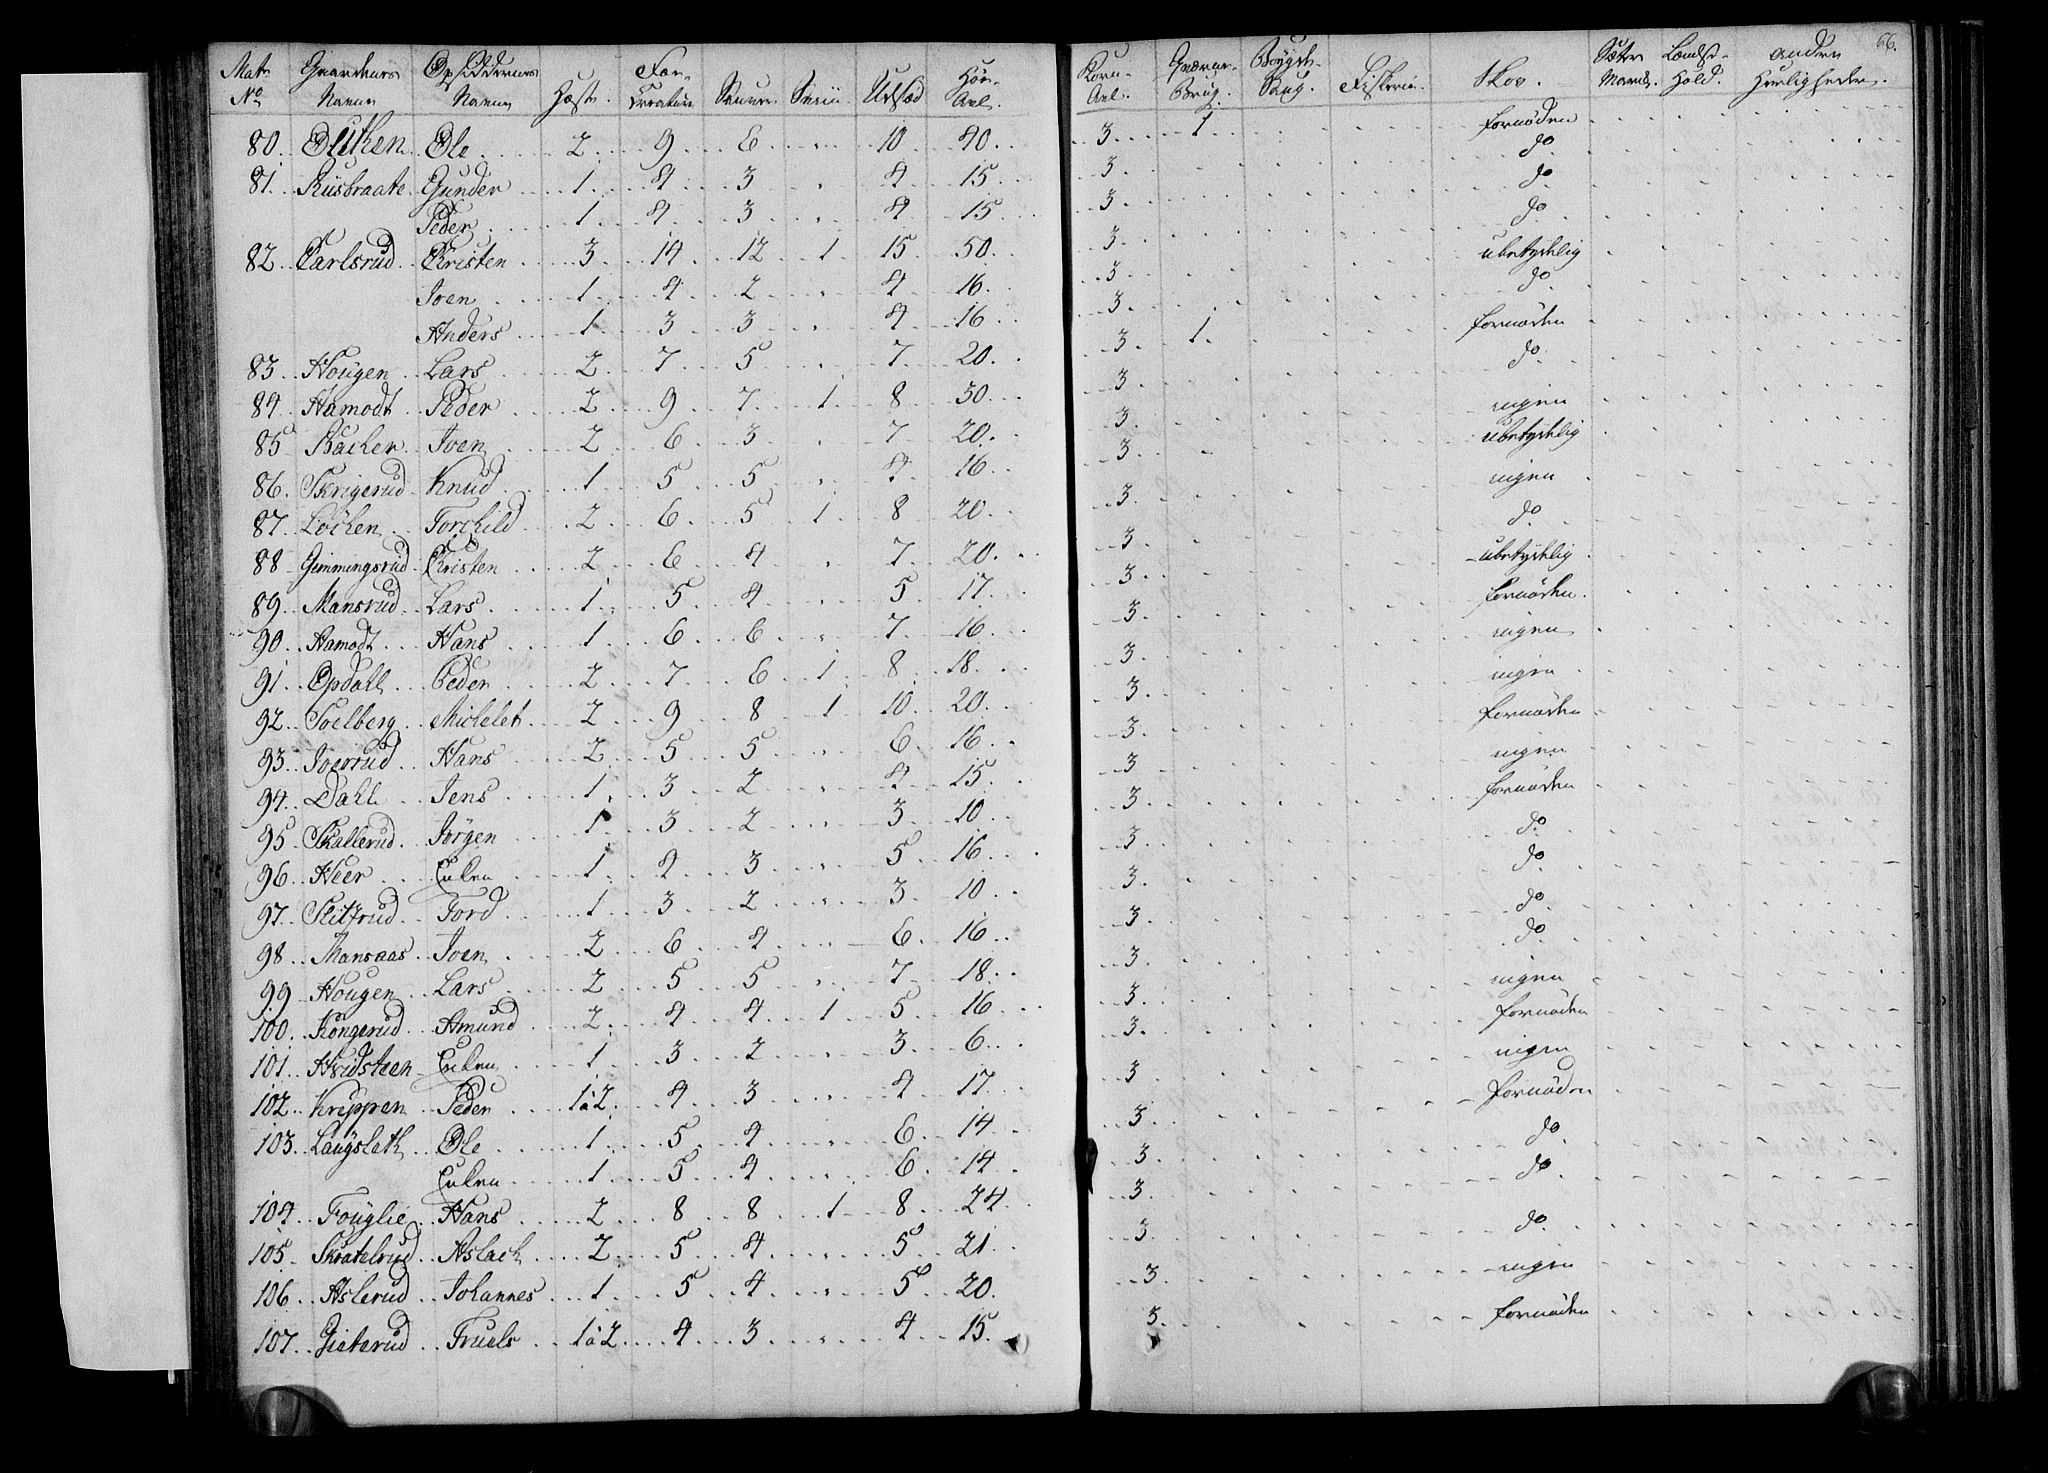 66.
Mats No Gaardens Navne Opsiddernes Navne Heste Fæe Creature Sauer Sviin Udsæd Høe Avl. Korn Avl. Qværne Brug. Bøygde Saug. Fiskerie. Skov. Sæter Havnd. Hold. andre Herligheder.
80. Ole 2 9 6 " 10 40. 3 1 fornøden
81. Riisbraate Gunder 1 4 3 " 4 15 3 do
Peder 1 4 3 " 4 15 3 do
82. Carlsrud Christen 3 14 12 1 15 50. 3 do
Joen 1 4 2 " 4 16 3 ubetydelig
Anders 1 3 3 " 4 16 3 do
83. Hougen Lars 2 7 5 " 7 20. 3 1. fornøden
84. Aamodt Peder 2 9 7 1 8 30 3 do
85. Backen Joen 2 6 3 " 7 20. 3 ingen
86. Skrigerud Knud 1 5 5 " 4 16 3 ubetydelig
87. Løchen Torchild 2 6 5 1 8 20. 3 ingen
88 Gimmingsrud Christen 2 6 4 " 7 20. 3 do
89. Mansrud Lars 1 5 4 " 5 17. 3 ubetydelig
90. Aamodt Hans 1 6 6 " 7 16 3 fornøden
91. Opdahl Peder 2 7 6 1 8 18. 3 ingen
92. Soelberg Michelet 2 9 8 1 10 20. 3 ingen
93. Joerrud Hans 2 5 5 " 6 16 3 fornøden
94. Dahl Jens 1 3 2 " 4 15 3 ingen
95 Skallerud Jørgen 1 3 2 " 3 10 3 fornøden
96. Heer Enken 1 4 3 " 5 16 3 do
97. Slitrud Tord 1 3 2 " 3 10 3 do
98. Mansaas Joen 2 6 4 " 6 16 3 do
99 Hougen Lars 2 5 5 " 7 18 3 do
100. Kongerud Amund 2 4 4 1 5 16 3 ingen
101. Hvidsteen Enken 1 3 2 " 3 6 3 fornøden
102. Kreppen Peder 1 a 2 4 3 " 4 17 3 ingen
103. Langsleth Ole 1 5 4 " 6 14 3 fornøden
Enken 1 5 4 " 6 14 3 do
104. Fouglie Hans 2 8 8 1 8 24 3 do
105 Skratelrud Aslach 2 5 4 " 5 21 3 do
106. Aslerud Johannes 1 5 4 " 5 20. 3 ingen
107. Gieterud Truels 1 a 2 4 3 " 4 15 3 fornøden